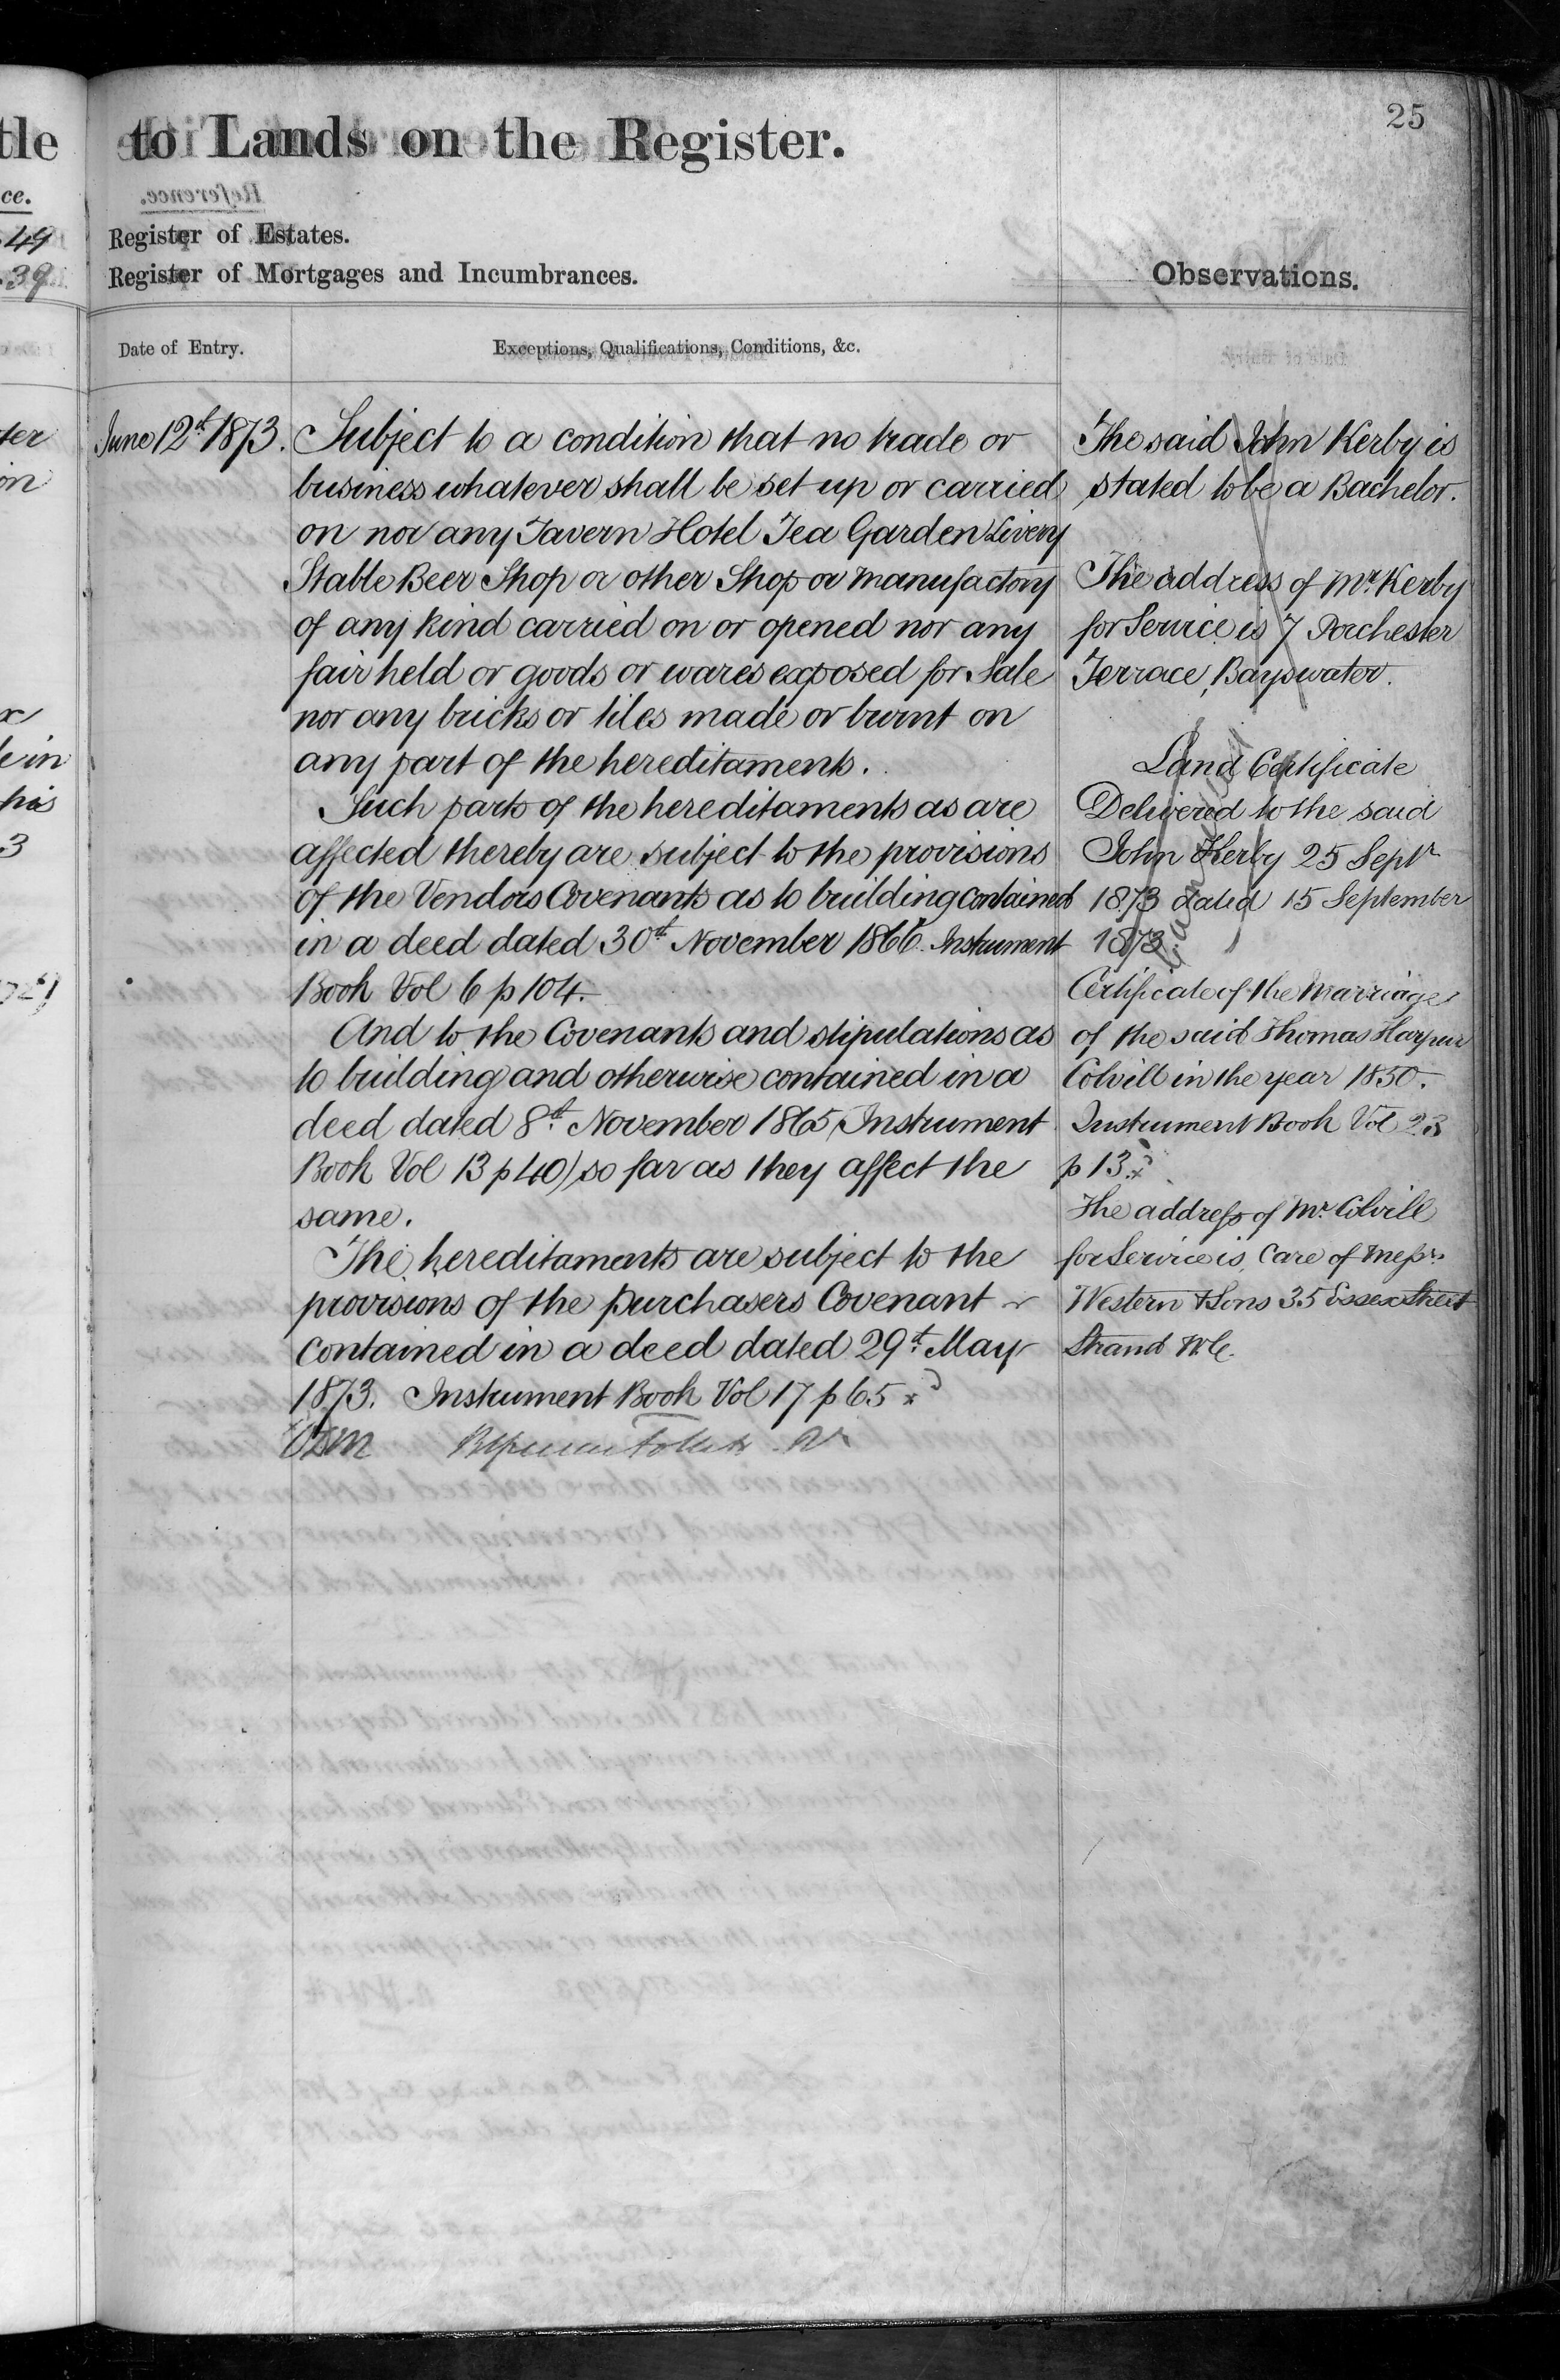 tle to Lands on the Register.
25
ce.
49
39
Register of Estates.
Register of Mortgages and Incumbrances.
Observations.
Date of Entry.
Exceptions, Qualifications, Conditions, &c.
June 12th 1873.
Subject to a condition that no trade or
business whatever shall be set up or carried
on nor any Tavern Hotel Tea Garden Livery
Stable Beer Shop or other Shop or manufactory
of any kind carried on or opened nor any
fair held or goods or wares exposed for Sale
nor any bricks or tiles made or burnt on
any part of the hereditaments.
Such parts of the hereditaments as are
affected thereby are subject to the provisions
of the Vendors Covenants as to building contained
in a deed dated 30th November 1866. Instrument
Book Vol 6 p 104.
And to the Covenants and stipulations as
to building and otherwise contained in a
deed dated 8th November 1865 (Instrument
Book Vol 13 p 40) so far as they affect the
same.
The hereditaments are subject to the
provisions of the purchasers Covenant
contained in a deed dated 29th May
1873. Instrument Book Vol 17 p 65
The said John Kerby is
stated to be a Bachelor.
The address of Mr. Kerby
for Service is 7 Porchester
Terrace, Bayswater.
Land Certificate
Delivered to the said
John Kerby 25 Septr
1873 dated 15 September
1873
Certificate of the Marriage
of the said Thomas Harpur
Colvill in the year 1850.
Instrument Book Vol 23
p 13.
The address of Mr. Colvill
for Service is, Care of Messrs.
Western & Sons 35 Essex Street
Strand W.C.